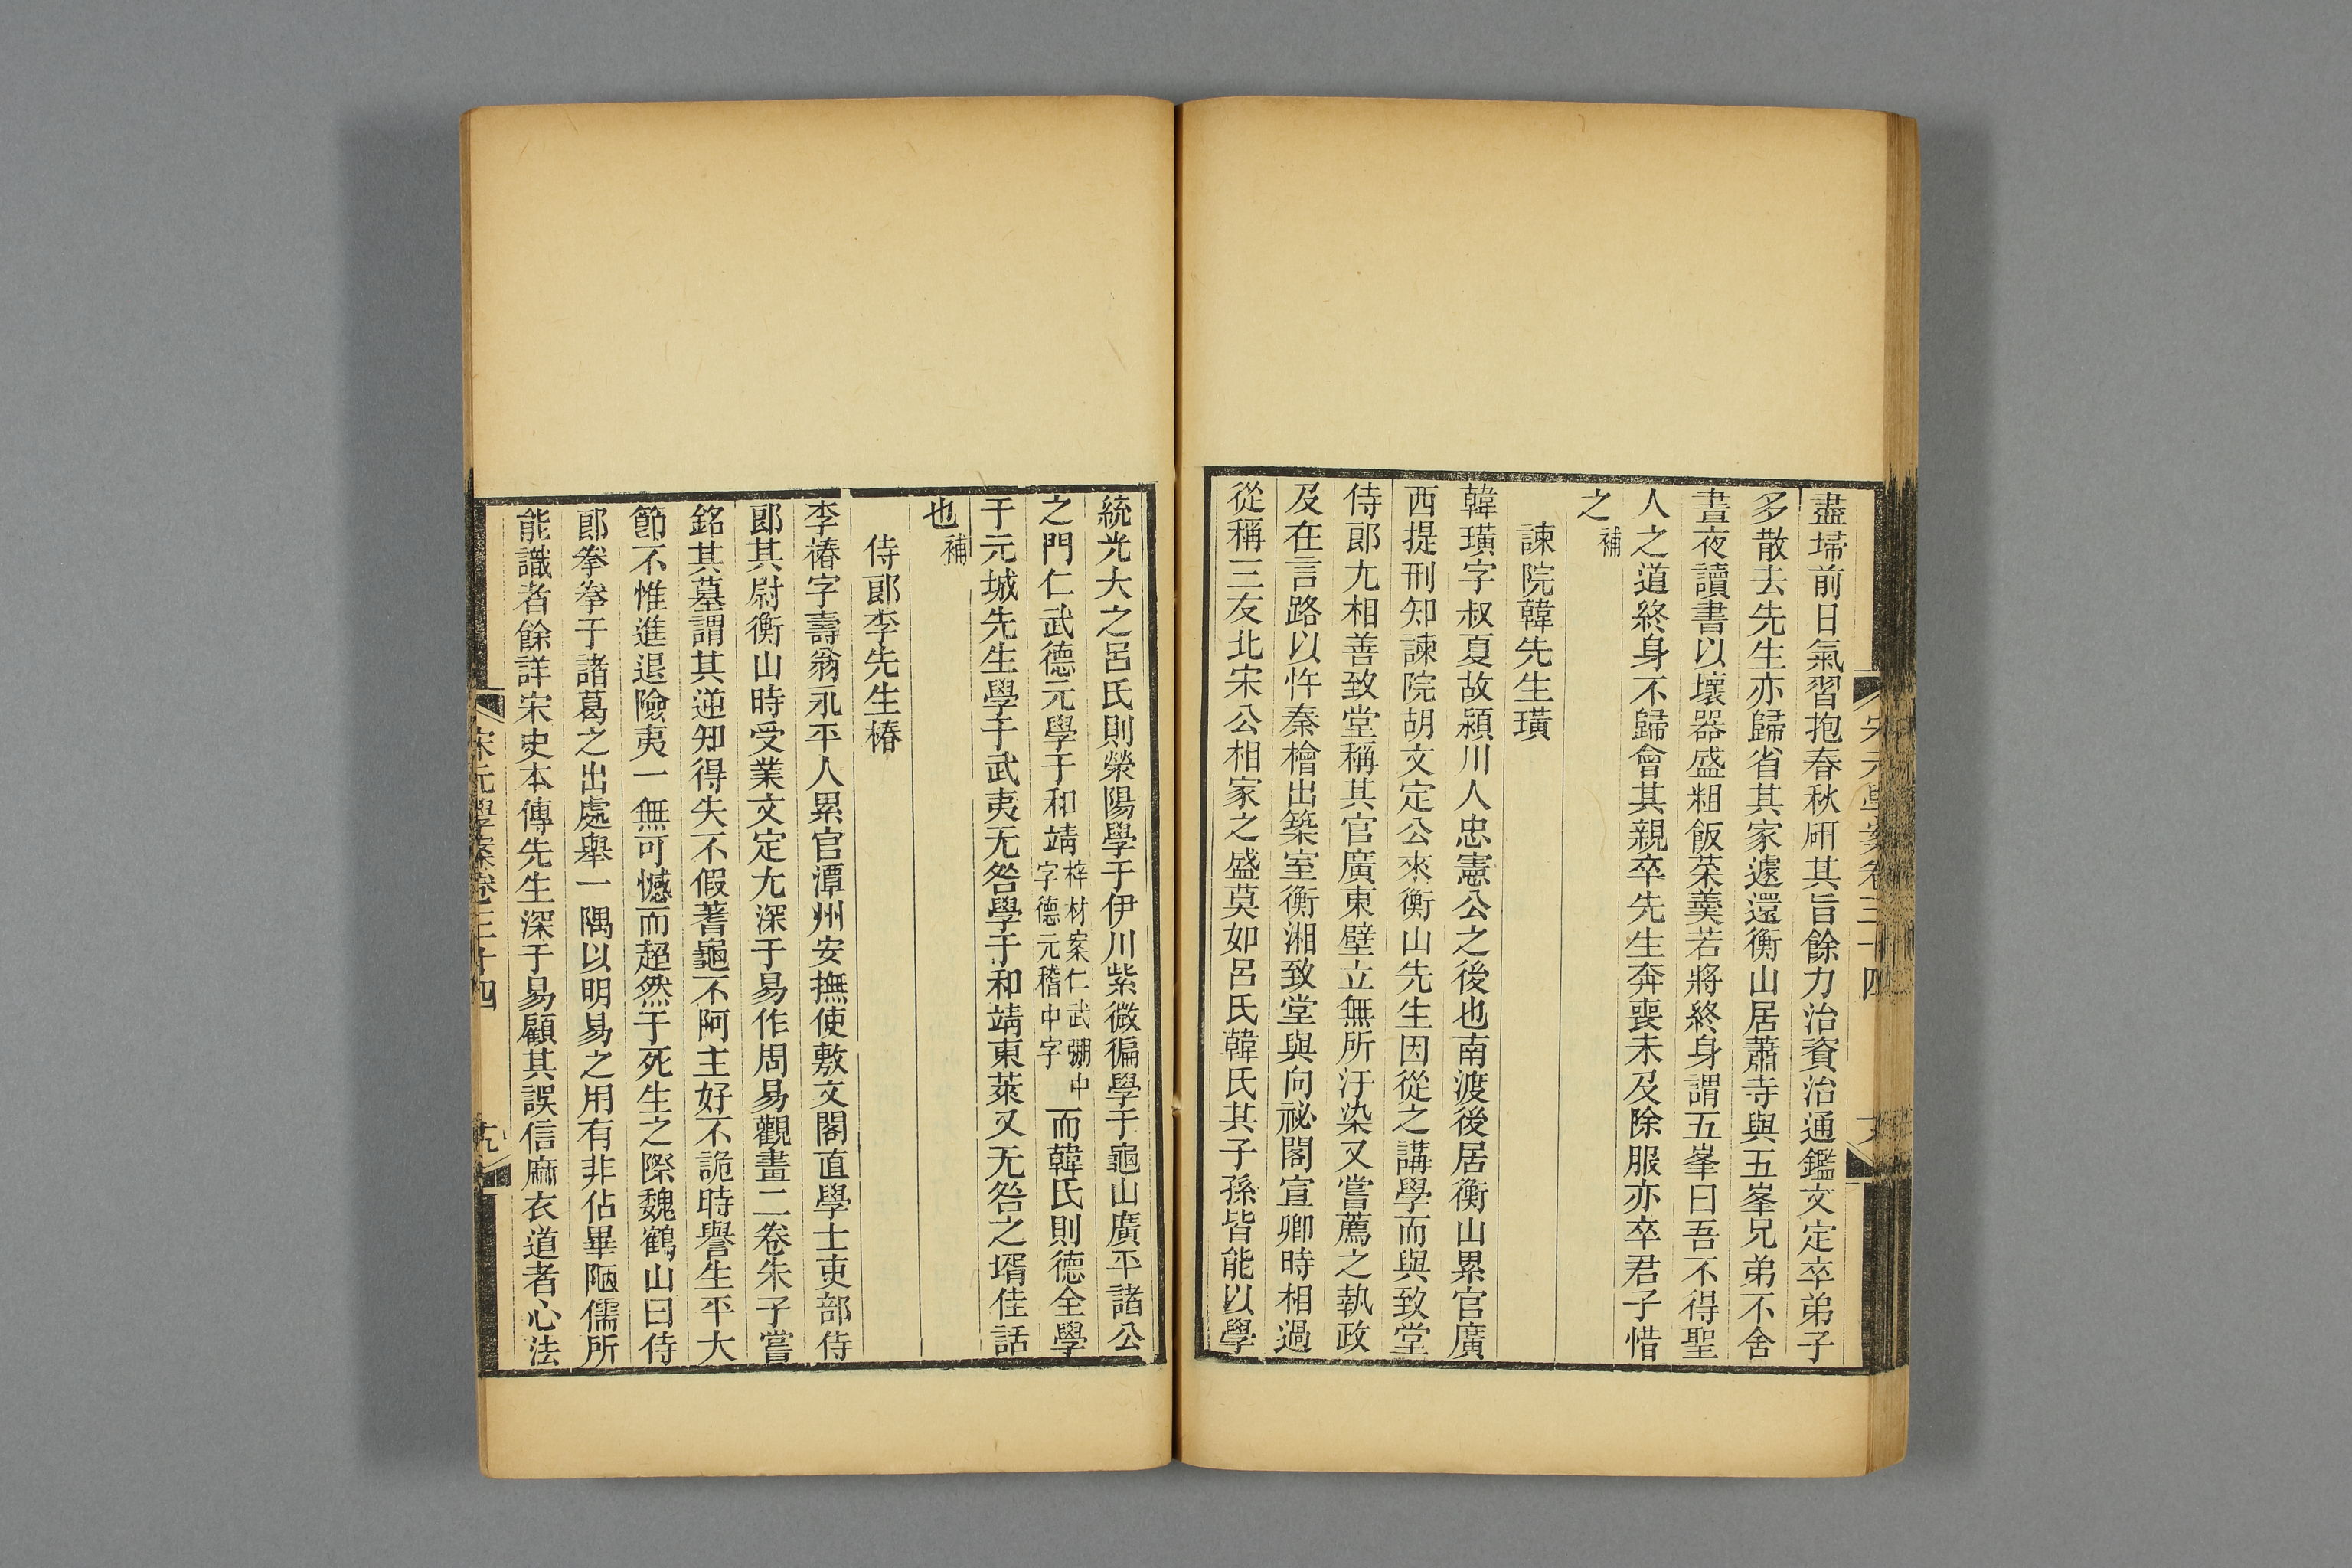 盡埽前日氣習抱春秋硏其旨餘力治資治通鑑文定卒弟子
多散去先生亦歸省其家遽還衡山居蕭寺與五峯兄弟不舍
晝夜讀書以壞器盛粗飯菜羹若將終身謂五峯曰吾不得聖
人之道終身不歸會其親卒先生奔喪未及除服亦卒君子惜
之補
諫院韓先生璜
韓璜字叔夏故潁川人忠憲公之後也南渡後居衡山累官廣
西提刑知諫院胡文定公來衡山先生因從之講學而與致堂
侍郎尤相善致堂稱其官廣東壁立無所汙染又嘗薦之執政
及在言路以忤秦檜出築室衡湘致堂與向祕閣宣卿時相過
從稱三友北宋公相家之盛莫如呂氏韓氏其子孫皆能以學
統光大之呂氏則滎陽學于伊川紫微徧學于龜山廣平諸公
之門仁武德元學于和靖梓材案仁武弸中字德元稽中字而韓氏則德全學
于元城先生學于武夷无咎學于和靖東萊又无咎之壻佳話
也補
侍郎李先生椿
李椿字壽翁永平人累官潭州安撫使敷文閣直學士吏部侍
郎其尉衡山時受業文定尤深于易作周易觀畫二卷朱子嘗
銘其墓謂其逆知得失不假蓍龜不阿主好不詭時譽生平大
節不惟進退險夷一無可憾而超然于死生之際魏鶴山曰侍
郎拳拳于諸葛之出處舉一隅以明易之用有非佔畢陋儒所
能識者餘詳宋史本傳先生深于易顧其誤信麻衣道者心法
宋元學案卷三十四